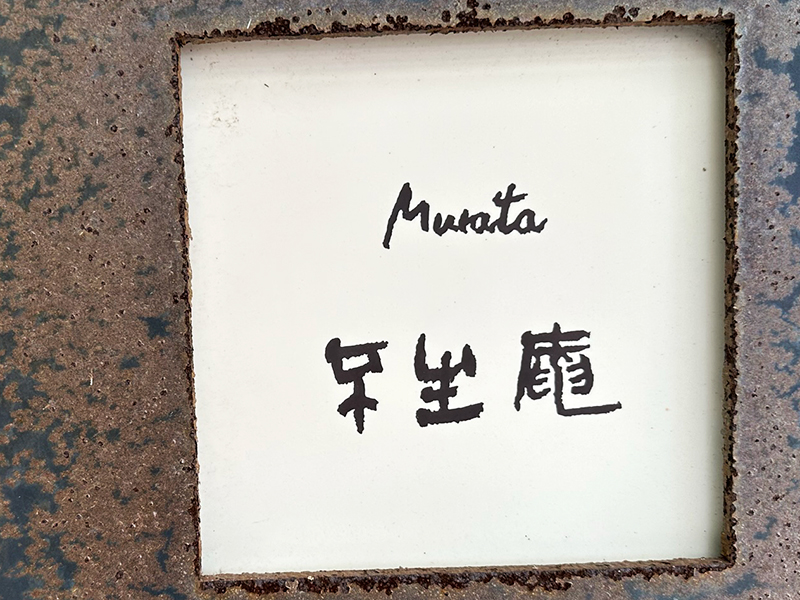 Murata
生庵